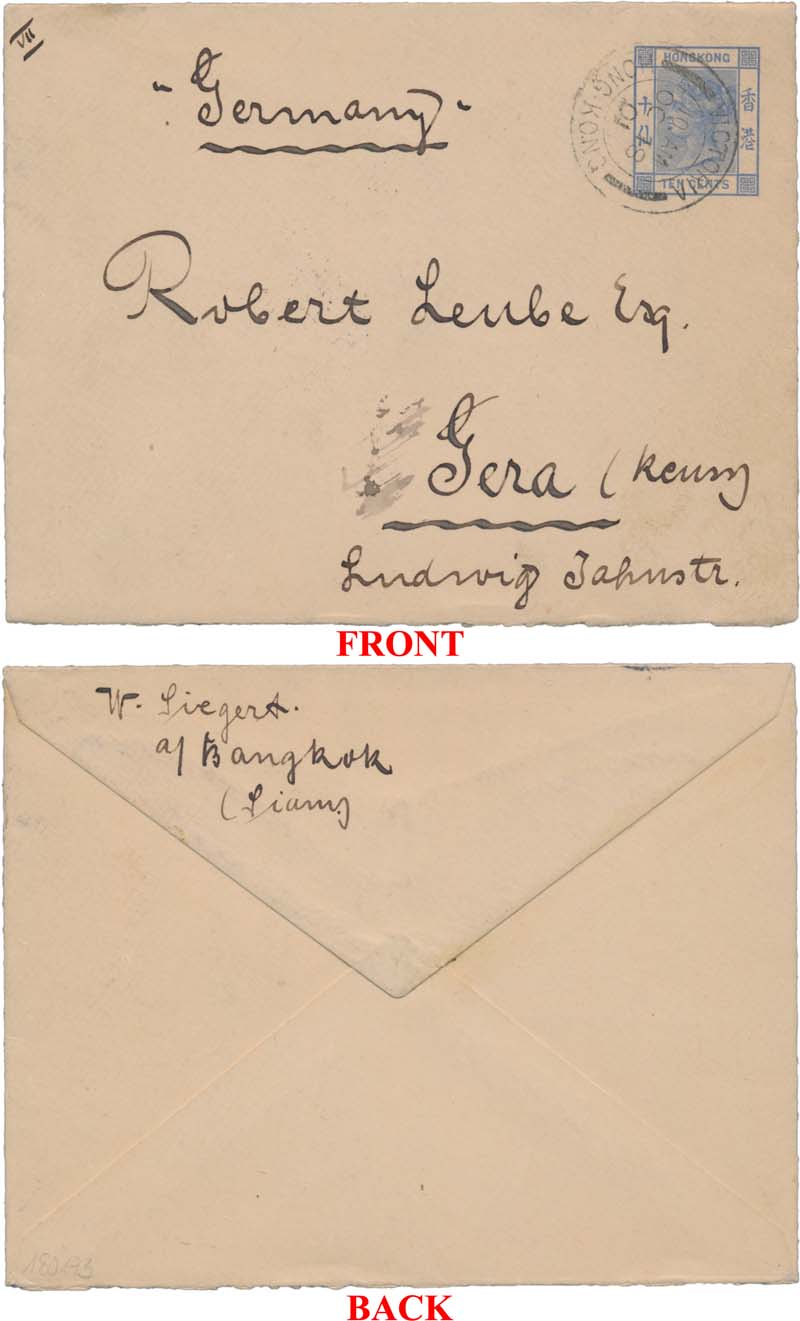 VII
"Germany"
HONGKONG
香港
TEN CENTS
VICTORIA
HONG·KONG
10 AM
OC 8
01
Robert Leube Esq.
Gera (Reuss)
Ludwig Jahnstr.
FRONT
W. Siegert.
a/ Bangkok
(Siam)
BACK